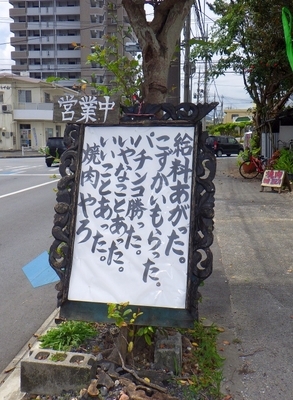 営業中
給料あがった。
こずかいもらった。
パチンコ勝った。
いやなことあった。
いいことあった。
焼肉やろ